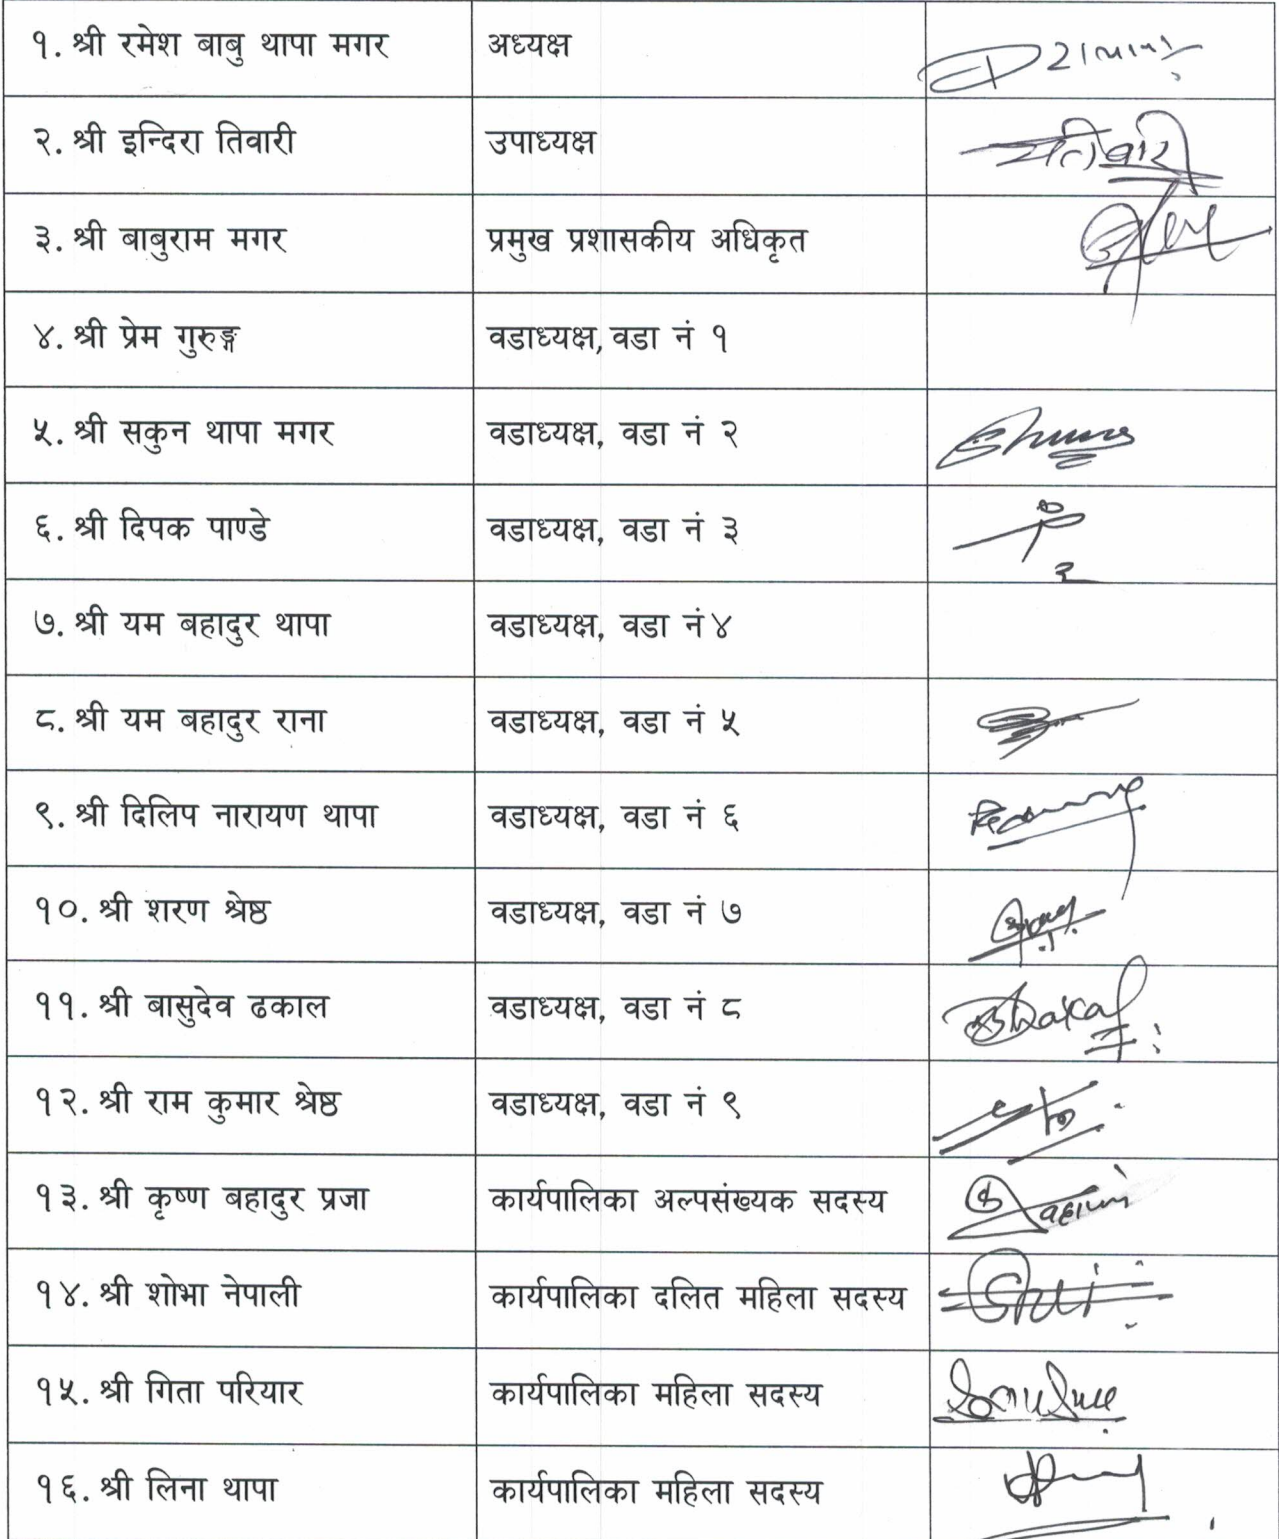 १. श्री रमेश बाबु थापा मगर अध्यक्ष
२. श्री इन्दिरा तिवारी उपाध्यक्ष
३. श्री बाबुराम मगर प्रमुख प्रशासकीय अधिकृत
४. श्री प्रेम गुरुङ्ग वडाध्यक्ष, वडा नं १
५. श्री सकुन थापा मगर वडाध्यक्ष, वडा नं २
६. श्री दिपक पाण्डे वडाध्यक्ष, वडा नं ३
७. श्री यम बहादुर थापा वडाध्यक्ष, वडा नं ४
८. श्री यम बहादुर राना वडाध्यक्ष, वडा नं ५
९. श्री दिलिप नारायण थापा वडाध्यक्ष, वडा नं ६
१०. श्री शरण श्रेष्ठ वडाध्यक्ष, वडा नं ७
११. श्री बासुदेव ढकाल वडाध्यक्ष, वडा नं ८
१२. श्री राम कुमार श्रेष्ठ वडाध्यक्ष, वडा नं ९
१३. श्री कृष्ण बहादुर प्रजा कार्यपालिका अल्पसंख्यक सदस्य
१४. श्री शोभा नेपाली कार्यपालिका दलित महिला सदस्य
१५. श्री गिता परियार कार्यपालिका महिला सदस्य
१६. श्री लिना थापा कार्यपालिका महिला सदस्य